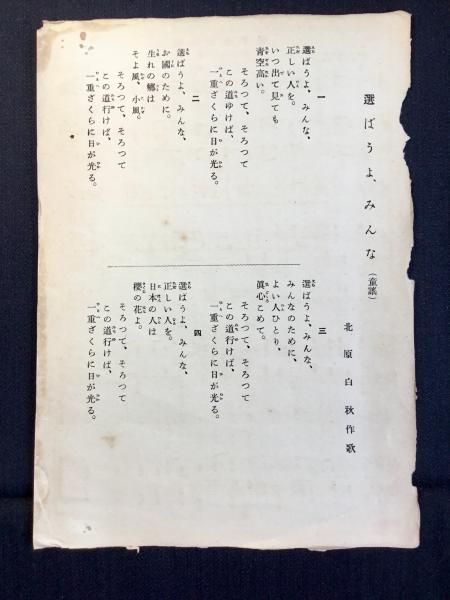 選ばうよ、みんな（童謠）
北原白秋作歌
一
選ばうよ、みんな、
正しい人を。
いつ出て見ても
青空高い。
そろつて、そろつて
この道ゆけば、
一重ざくらに日が光る。
二
選ばうよ、みんな、
お國のために。
生れの鄕は
そよ風、小風。
そろつて、そろつて
この道行けば、
一重ざくらに日が光る。
三
選ばうよ、みんな、
みんなのために、
よい人ひとり、
眞心こめて。
そろつて、そろつて
この道行けば、
一重ざくらに日が光る。
四
選ばうよ、みんな、
正しい人を。
日本の人は
櫻の花よ。
そろつて、そろつて
この道行けば、
一重ざくらに日が光る。